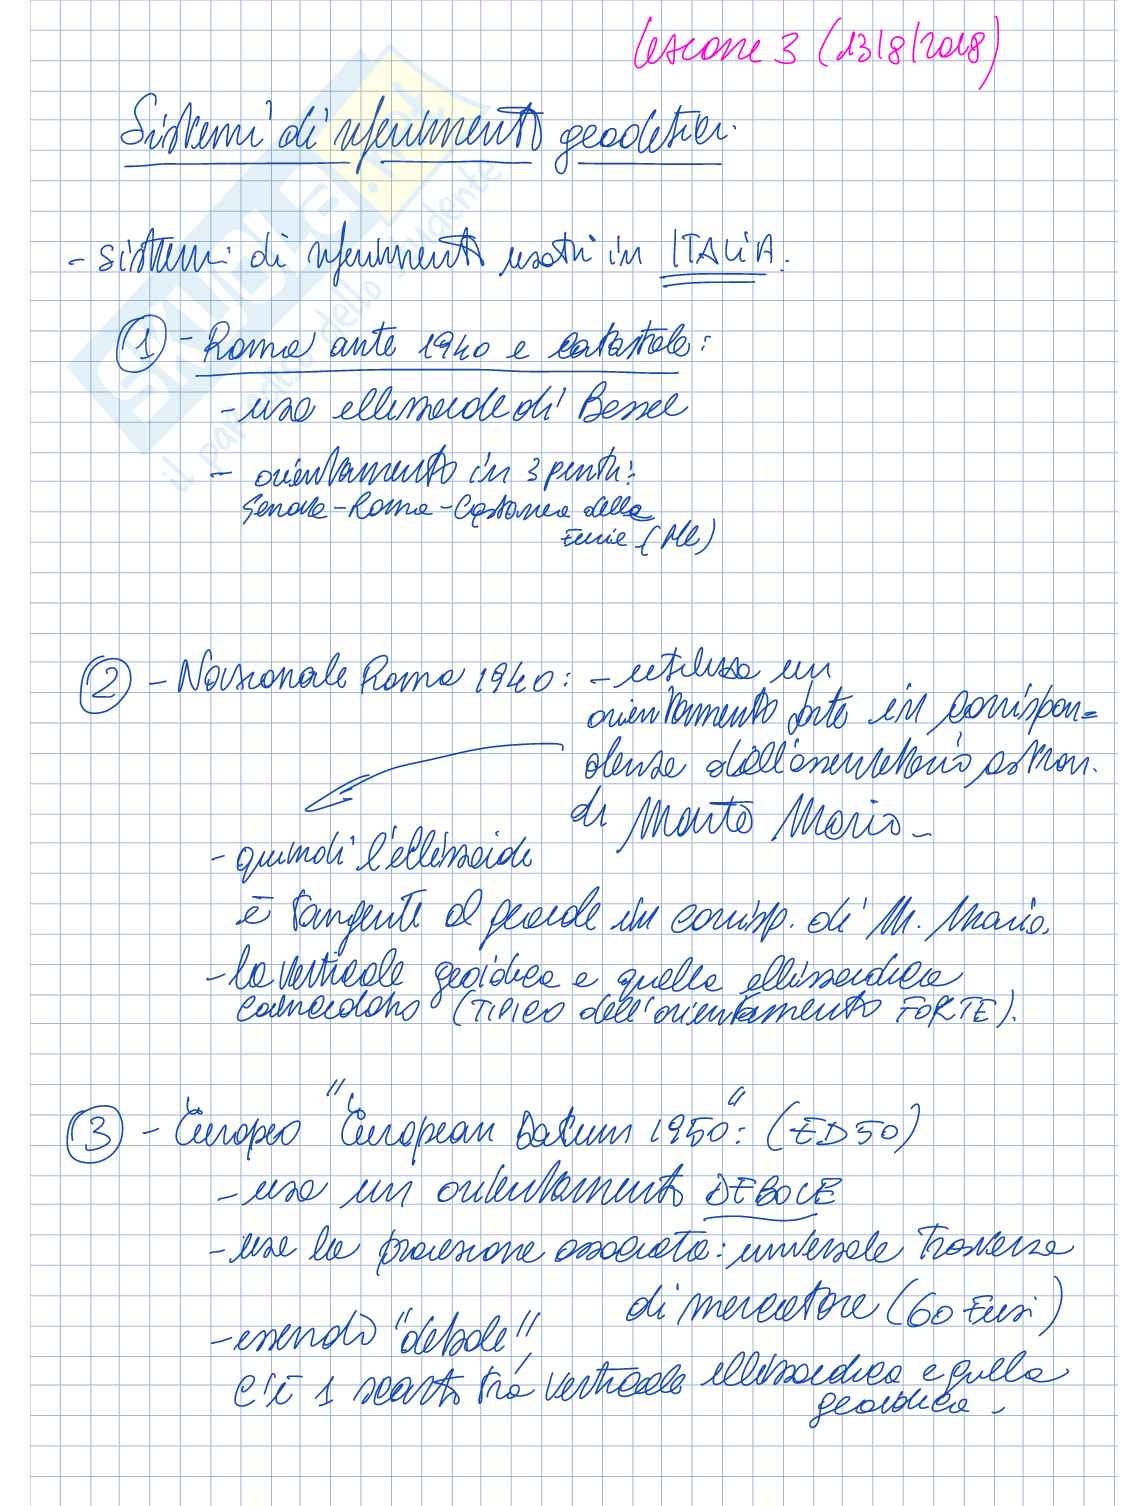 Lezione 3 (13/8/2018)
Sistemi di riferimento geodetici.
- sistemi di riferimento usati in ITALIA.
1 - Roma ante 1940 e catastale:
- usa ellissoide di Bessel
- orientamento in 3 punti:
Genova - Roma - Castanea delle
Furie (Me)
2 - Nazionale Roma 1940: - utilizza un
orientamento forte in corrispon=
denza dell'osservatorio astron.
di Monte Mario -
- quindi l'ellissoide
è tangente al geoide in corrisp. di M. Mario.
- la verticale geoidica e quella ellissoidica
coincidono (TIPICO dell'orientamento FORTE).
3 - Europeo "European Datum 1950": (ED50)
- usa un orientamento DEBOLE
- usa la proiezione associata: universale trasversa
di mercatore (60 Fusi)
- essendo "debole",
c'è 1 scarto tra verticale ellissoidica e quella
geoidica -
STUDLE.NT
il paradiso dello studente